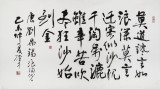 莫道谗言如
浪深莫言迁
客似沙沉
千淘万漉虽
辛苦吹尽
狂沙始
到金
唐刘禹锡浪淘沙
乙未仲夏